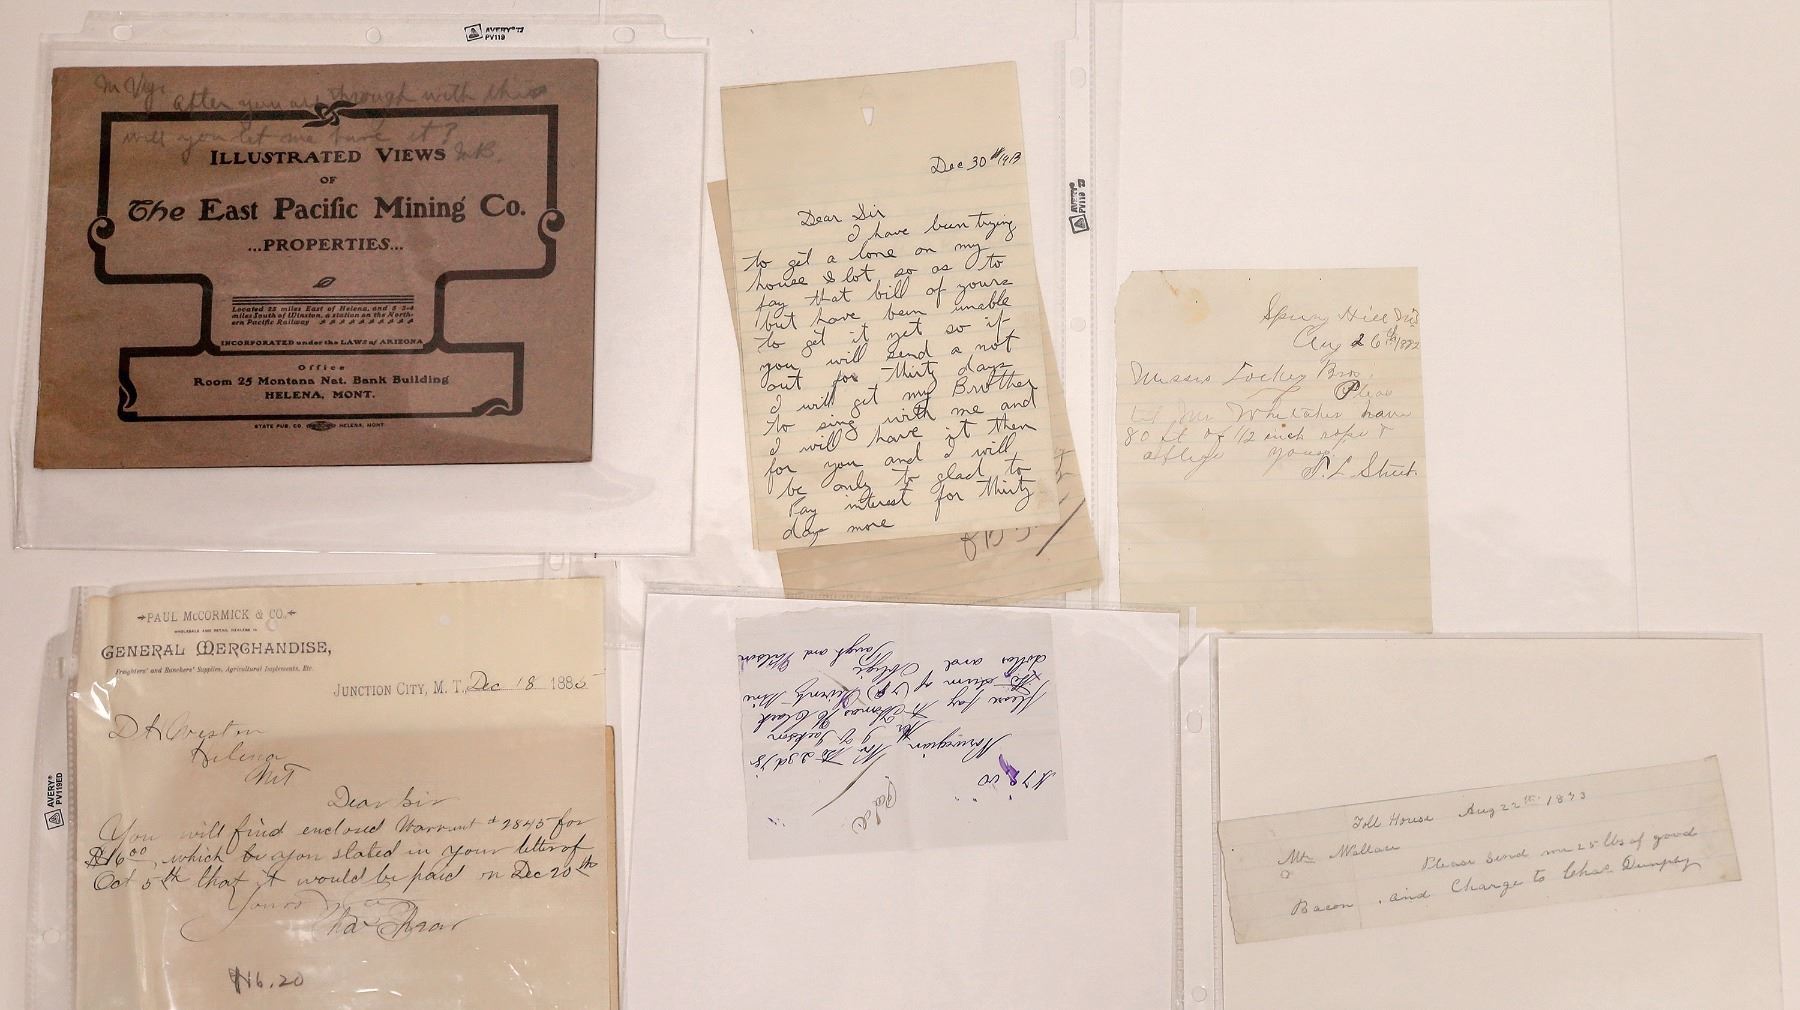 AVERY®
PV119
After you are through with this
will you let me have it?
ILLUSTRATED VIEWS
OF
The East Pacific Mining Co.
...PROPERTIES...
Located 25 miles East of Helena, and 5 3-4
miles South of Winston, a station on the North-
ern Pacific Railway
INCORPORATED under the LAWS of ARIZONA
Office
Room 25 Montana Nat. Bank Building
HELENA, MONT.
STATE PUB. CO. HELENA, MONT
Dec 30th 1913
Dear Sir
I have been trying
to get a lone on my
house & lot so as to
pay that bill of yours
but have been unable
to get it yet so if
you will send a not
out for thirty days
I will get my Brother
to sing with me and
I will have it then
for you and I will
be only to glad to
Pay interest for thirty
days more
AVERY®
PV119
Spring Hill
Aug 26th/1882
Messrs Lockey Bros.
Please
let Mr Whitaker have
80 ft of 1/2 inch rope &
oblige yours
PAUL McCORMICK & CO.
WHOLESALE AND RETAIL DEALERS IN
GENERAL MERCHANDISE,
Freighters' and Ranchers' Supplies, Agricultural Implements, Etc.
JUNCTION CITY, M. T., Dec 18 1885
Weston
Helena
MT
Dear Sir
You will find enclosed Warrant # 2845 for
$16 00, which be you stated in your letter of
Oct 5th that it would be paid on Dec 20th
Yours
$16.20
AVERY®
PV119ED
$78.00
Norwegian
Jackson
Please pay to Thomas H Clark
the sum of Seventy
dollars and Oblige
Vaught and Wilson
Toll House Aug 22th 1873
Mr Wallace
Please Send me 25 lbs of good
Bacon. and Charge to Chas Dumpsy